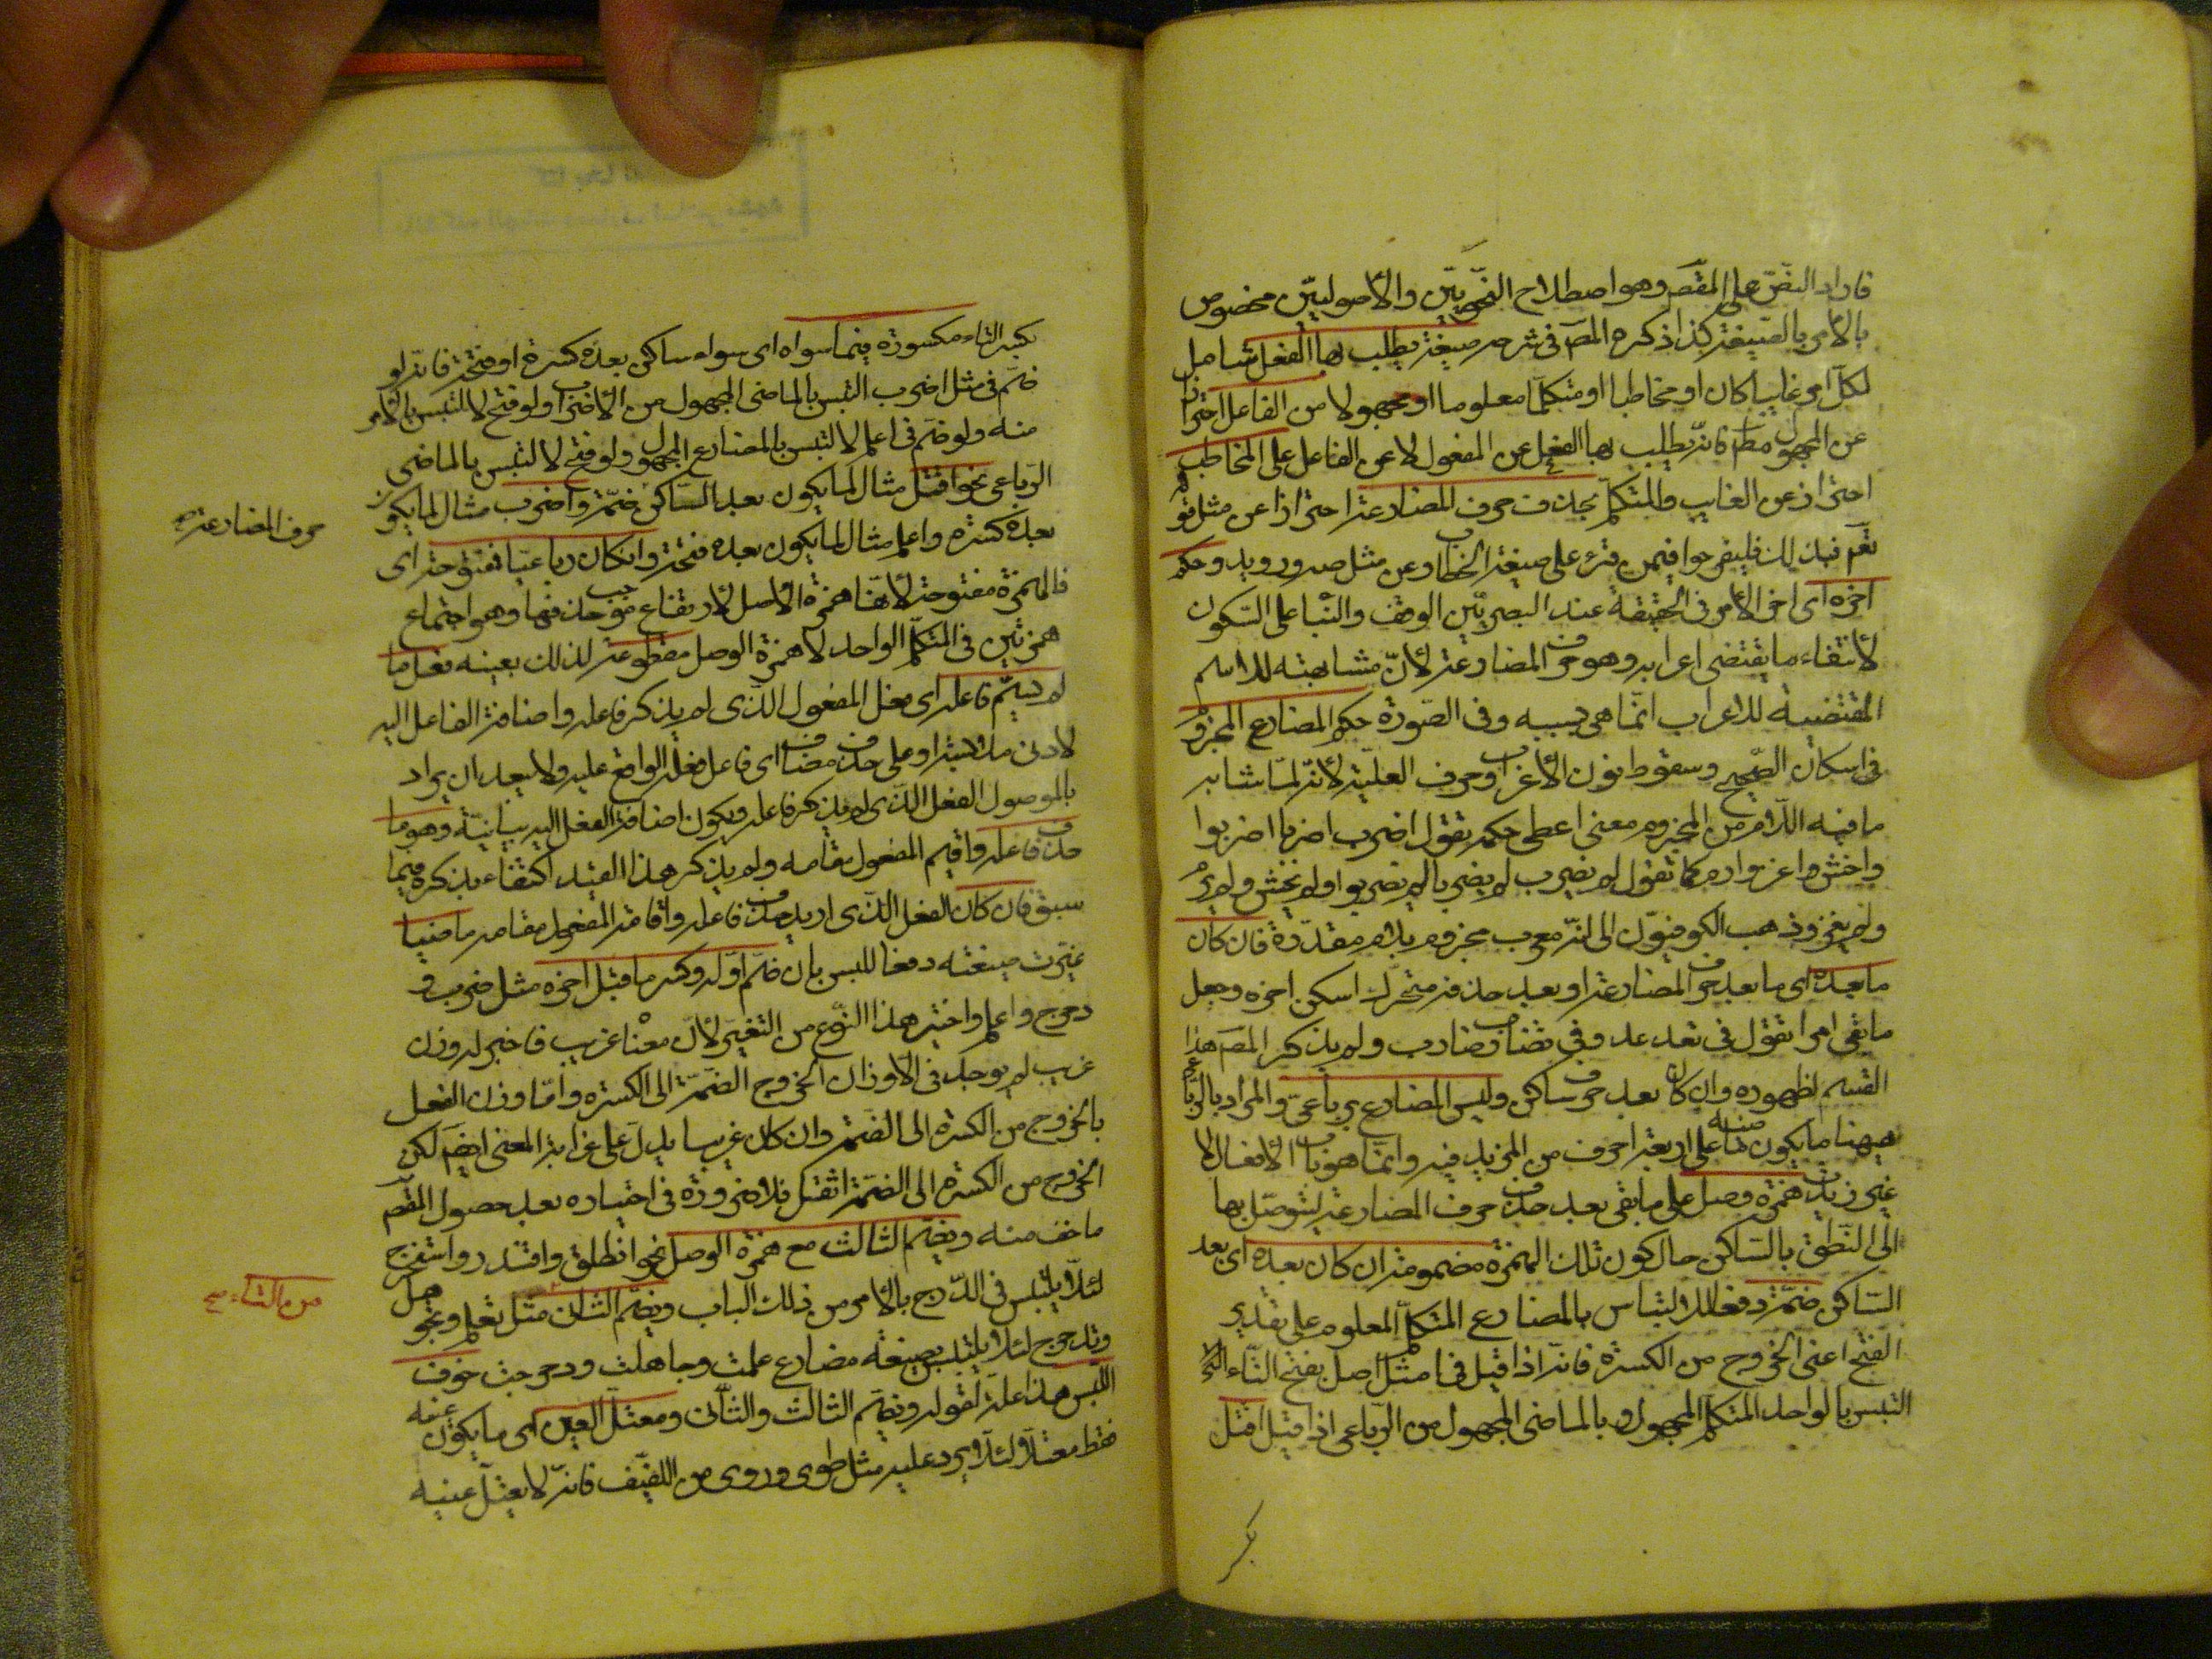 فاراد النص على المقصَ وهو اصطلاح النحويّين والاصوليّين مخصوص
بالامر بالصيغة كذا ذكره المصَ فى شرحه صيغة يطلب بها الفعل شامل
لكلّ امر غايبا كان او مخاطبا او متكلّما معلوما او مجهولا من الفاعل احتراز
عن المجهول مطَ فانّه يطلب بها الفعل عن المفعول لا عن الفاعل على المخاطب
احتراز عن الغايب والمتكلّم بحذف حرف المضارعة احترازا عن مثل قوله
تعَم فبذلك فليفرحوا فيمن قرئ على صيغة الخطاب وعن مثل صه ورويد وحكم
اخره اى اخر الامر فى الحقيقة عند البصريّين الوقف والبنا على السكون
لانتفاء ما يقتضى اعرابه وهو حرف المضارعة لانّ مشابهته للاسم
المقتضية للاعراب انّما هى بسببه وفى الصّورة حكم المضارع المجزوم
فى اسكان الصّحيح وسقوط نون الاعراب وحرف العلّة لانّه لمّا شابه
ما فيه اللّام من المجزوم معنى اعطى حكمه تقول اضرب اضربا اضربوا
واخش واغز وارم كما تقول لم يضرب لم يضربا لم يضربوا ولم يخش ولم يرم
ولم يغز وذهب الكوفيّون الى انّه معرب مجزوم بلام مقدّرة فان كان
ما بعده اى ما بعد حرف المضارعة او بعد حذفه متحرّك اسكن اخره وجعل
ما بقى امرا تقول فى تعد عد وفى تضارب ضارب ولم يذكر المصَ هذا
القسم لظهوره وان كان بعد حرف ساكن وليس المضارع برباعىّ والمراد بالرّباعى
ههنا ما يكون ماضيه على اربعة احرف من المزيد فيه وانّما هو باب الافعال لا
غير زيدت همزة وصل على ما بقى بعد حذف حرف المضارعة ليتوصّل بها
الى النّطق بالسّاكن حال كون تلك الهمزة مضمومة ان كان بعده اى بعد
السّاكن ضمّة دفعا للالتباس بالمضارع المتكلّم المعلوم على تقدير
الفتح اعنى الخروج من الكسرة فانّه اذا قيل فى مثل اصل بفتح التّاء
التبس بالواحد المتكلّم المجهول وبالماضى المجهول من الرّباعى اذا قيل اقتل
بكسر التاء مكسورة فيما سواه اى سواء ساكن بعده كسرة او فتحة فانّه لو
ضمّ فى مثل اضرب التبس بالماضى المجهول من الاضراب ولو فتح لالتبس بالامر
منه ولو ضمّ فى اعلم لالتبس بالمضارع المجهول ولو فتح لالتبس بالماضى
الرّباعى نحو اقتل مثال لما يكون بعد السّاكن ضمّة واضرب مثال لما يكون
بعده كسرة واعلم مثال لما يكون بعده فتحة وان كان رباعيّا فمفتوحة اى
فالهمزة مفتوحة لانّها همزة الاصل لارتفاع موجب حذفها وهو اجتماع
حرف المضارعة صح
همزتين فى المتكلّم الواحد لا همزة الوصل مقطوعة لذلك بعينه فعل ما
لم يسمّ فاعله اى فعل المفعول الّذى لم يذكر فاعله واضافة الفاعل اليه
لادنى ملابسة او على حذف مضاف اى فاعل فعله الواقع عليه ولا يبعد ان يراد
بالموصول الفعل الّذى لم يذكر فاعله ويكون اضافة الفعل اليه بيانيّة وهو ما
حذف فاعله واقيم المفعول مقامه ولم يذكر هذا القيد اكتفاء بذكره فيما
سبق فان كان الفعل الّذى اريد حذف فاعله واقامة المفعول مقامه ماضيا
غيّرت صيغته دفعا للبس بان ضمّ اوّله وكسر ما قبل اخره مثل ضرب و
دحرج واعلم واختير هذا النّوع من التغيير لانّ معناه غريب فاختير له وزن
غريب لم يوجد فى الاوزان الخروج الضمّة الى الكسرة وامّا وزن الفعل
بالخروج من الكسرة الى الضمّة وان كان غريبا يدلّ على غرابة المعنى ايضَ لكن
الخروج من الكسرة الى الضمّة اثقل فلا ضرورة فى اختياره بعد حصول المقصَ
ما خف منه ويضمّ الثالث مع همزة الوصل نحو انطلق واقتدر واستخرج
لئلّا يلتبس فى الدّرج بالامر من ذلك الباب ويضمّ الثانى مثل تعلم وتجوهل
من التاء صح
وتدحرج لئلا يلتبس بصيغة مضارع علمت وجاهلت ودحرجت خوف
اللبس هذا علّة لقوله ويضمّ الثالث والثّانى ومعتلّ العين اى ما يكون عينه
فقط معتلّا ولئلّا يرد عليه مثل طوى وروى من اللفيف فانّه لا يعتلّ عينه